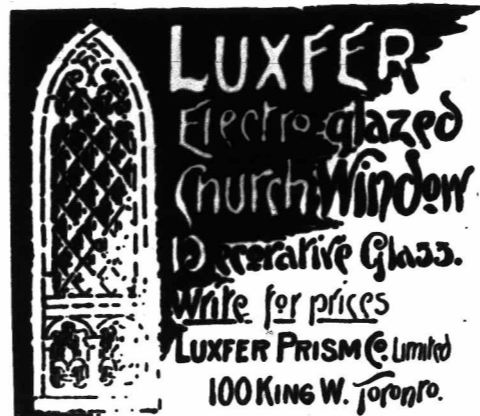 LUXFER
Electro-glazed
Church Window
Decorative Glass.
Write for prices
LUXFER PRISM Co. Limited
100 KING W. Toronto.